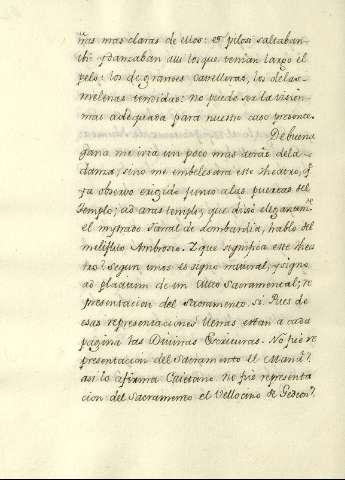 ñas mas claras de ellos: et pilosi saltabant
ibi: y danzaban alli los que tenian largo el
pelo: los de grandes cavelleras, los de las
melenas tendidas: no puede ser la vision
mas adequada para nuestro caso presente.
De buena
gana me iria un poco mas atras de la
danza, sino me embelesara este theatro, q.e
ya observo erigido junto a las puertas del
Templo; ad aras templi, que dixo elegantem.te
el mytrado Panal de Lombardia, hablo del
melifluo Ambrosio. Y que significa este thea
tro? Segun unos es signo natural, y signo
ad placitum de un Auto Sacramental; re
presentacion del Sacramento. Si. Pues de
esas representaciones llenas estan a cada
pagina las Divinas Escrituras. No fue re
presentacion del Sacramento el Maná?
asi lo afirma Caietano. No fue representa
cion del Sacramento el Vellocino de Gedeon?